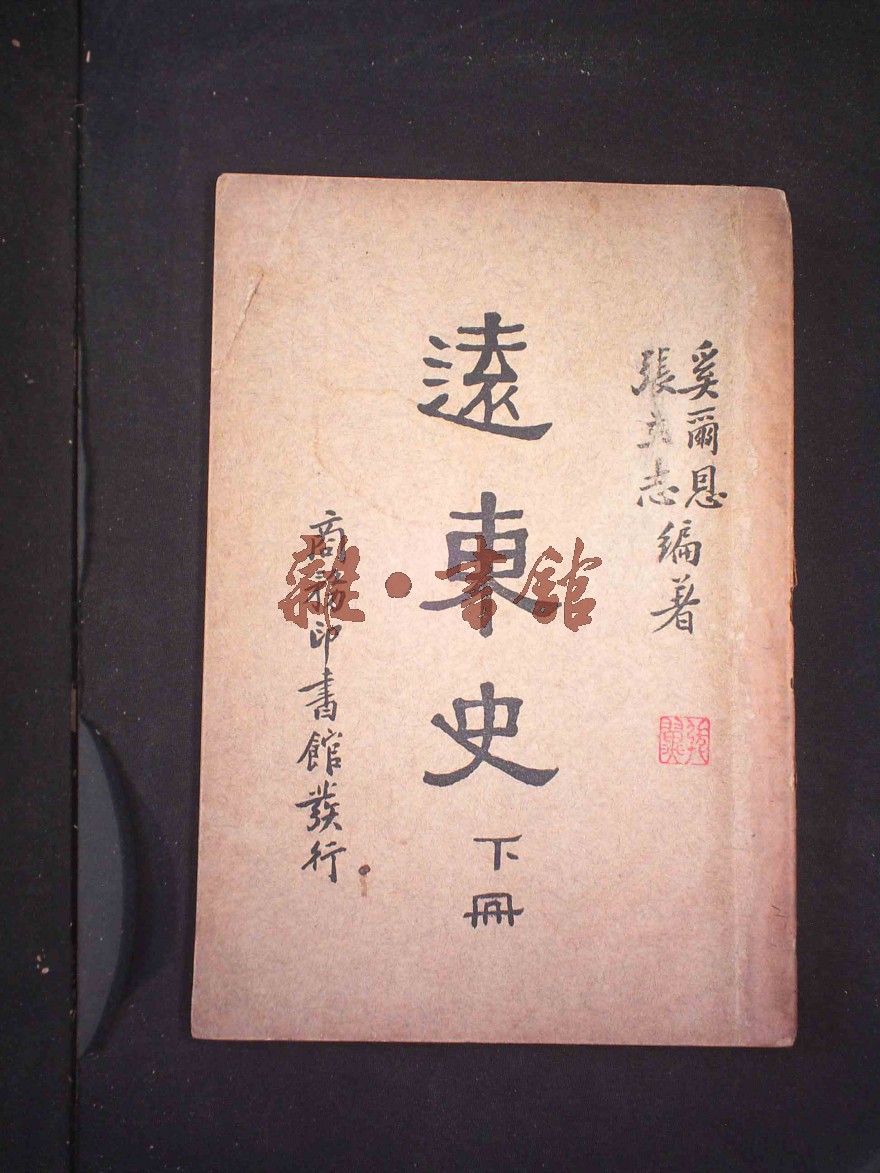 奚爾恩
張立志
編著
遠東史
下冊
商務印書館發行
雜·書館